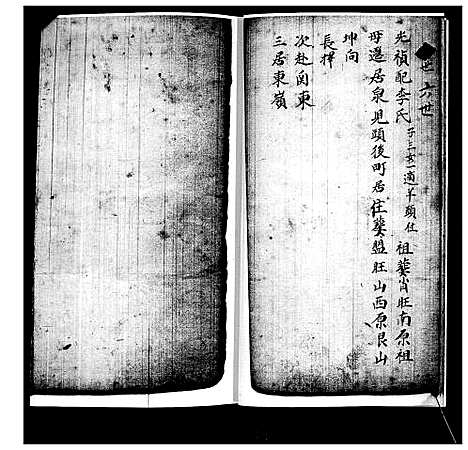 六世
光禎配李氏 子三女一適羊頭仕 祖葬省旺南原祖
毋遷居泉見頭後町居住葬盟旺山西原艮山
坤向
長擇
次赴関東
三居東嶺